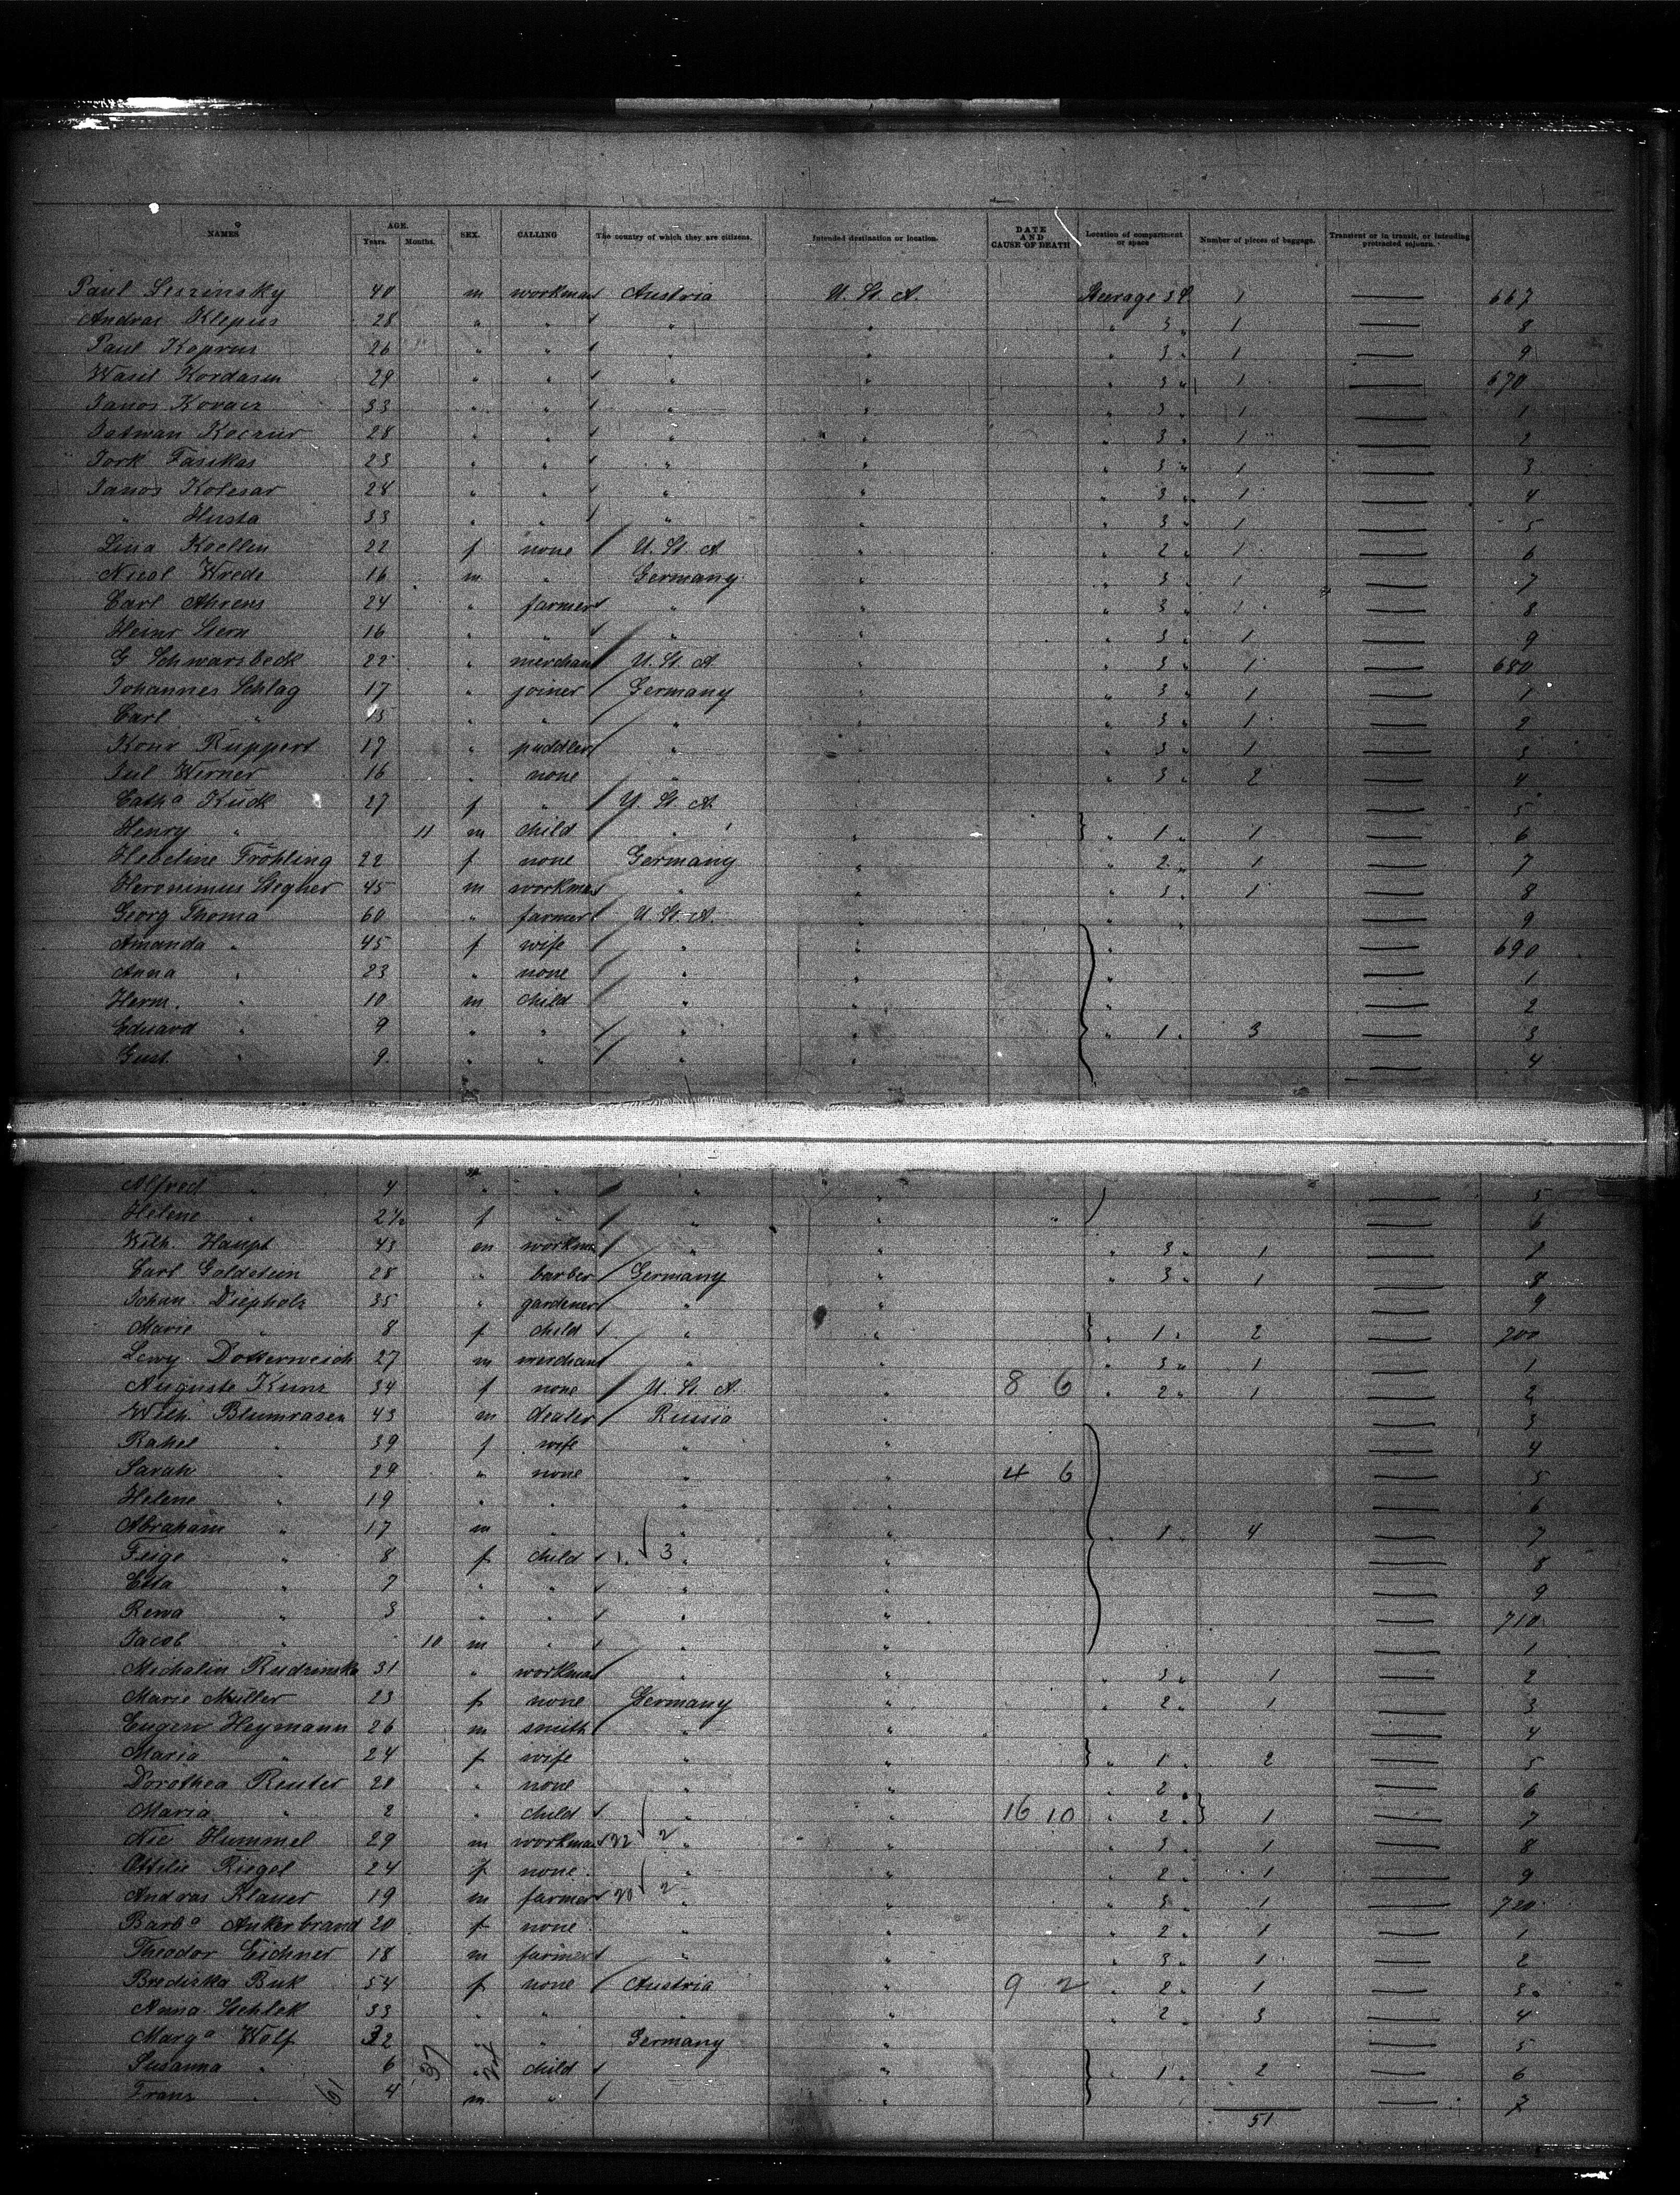 NAMES AGE. Years. Months. SEX. CALLING The country of which they are citizens. Intended destination or location. DATE AND CAUSE OF DEATH Location of compartment or space Number of pieces of baggage. Transient or in transit, or intending protracted sojourn.
Paul 40 m workman Austria U. St. A. Steerage 3 1 — 667
Andras Klepus 28 " " " " " 3 " 1 — 8
Paul Koprus 26 " " " " " 3 " 1 — 9
Wasil Kordasin 29 " " " " " 3 " 1 — 670
Janos Kovacs 33 " " " " " 3 " 1 — 1
Koczur 28 " " " " " 3 " 1 — 2
Jork Fasikas 23 " " " " " 3 " 1 — 3
Janos Kolesar 28 " " " " " 3 " 1 — 4
" Husta 33 " " " " " 3 " 1 — 5
Lina Koellin 22 f none U. St. A " " 2 " 1 — 6
Nicol Wrede 16 m " Germany " " 3 " 1 — 7
Carl Ahrens 24 " farmer " " " 3 " 1 — 8
Heinr Stern 16 " " " " " 3 " 1 — 9
G Schwarzbeck 22 " merchant U. St. A " " 3 " 1 — 680
Johannes Schlag 17 " joiner Germany " " 3 " 1 — 1
Carl " 15 " " " " " 3 " 1 — 2
Konr Ruppert 17 " puddler " " " 3 " 1 — 3
Jul Werner 16 " none " " " 3 " 2 — 4
Catha Kück 27 f " U. St. A. " — 5
Henry " 11 m child " " " 1 " 1 — 6
Hebeline Fröhling 22 f none Germany " " 2 " 1 — 7
Heronimus Stegner 45 m workman " " " 3 " 1 — 8
Georg Thoma 60 " farmer U. St. A. " " — 9
Amanda " 45 f wife " " " — 690
Anna " 23 " none " " " — 1
Herm. " 10 m child " " " — 2
Eduard " 9 " " " " " 1 " 3 — 3
Gust. " 9 " " " " — 4
Alfred " 4 " " " " — 5
Helene " 2½ f " " " — 6
Wilh. Haupt 43 m workman " " " 3 " 1 — 7
Carl Goldstein 28 " barber Germany " " 3 " 1 — 8
Johan Diepholz 35 " gardener " " — 9
Marie " 8 f child " " " 1 " 2 — 700
Lewy Dotterweich 27 m merchant " " " 3 " 1 — 1
Auguste Kunz 34 f none U. St. A. " 8 6 " 2 " 1 — 2
Wilh. Blumrasen 43 m dealer Russia " — 3
Rahel " 39 f wife " " — 4
Sarah " 29 " none " " 4 6 — 5
Helene " 19 " " " " — 6
Abraham " 17 m " " " " 1 " 4 — 7
Feige " 8 f child 1. 3 " " — 8
Etta " 7 " " " " — 9
Rewa " 3 " " " " — 710
Jacob " 10 m " " " — 1
Michalin Rudzinska 31 " workman " " " 3 " 1 — 2
Marie Müller 23 f none Germany " " 2 " 1 — 3
Eugen Heymann 26 m smith " " — 4
Maria " 24 f wife " " " 1 " 2 — 5
Dorothea Reuter 20 " none " " " 2 " — 6
Maria " 2 " child " " 16 10 " 2 " 1 — 7
Nic Hummel 29 m workman 22 2 " " " 3 " 1 — 8
Ottilie Riegel 24 f none " " " 2 " 1 — 9
Andras Klauer 19 m farmer 20 2 " " " 3 " 1 — 720
Barba Ankerbrand 20 f none " " " 2 " 1 — 1
Theodor Eichner 18 m farmer " " " 3 " 1 — 2
Brediska Buk 54 f none Austria " 9 2 " 2 " 1 — 3
Anna 33 " " " " " 2 " 3 — 4
Marga Wolf 32 " " Germany " — 5
Susanna " 6 37 " 24 child " " 1 " 2 — 6
Franz " 61 4 m " " — 7
51